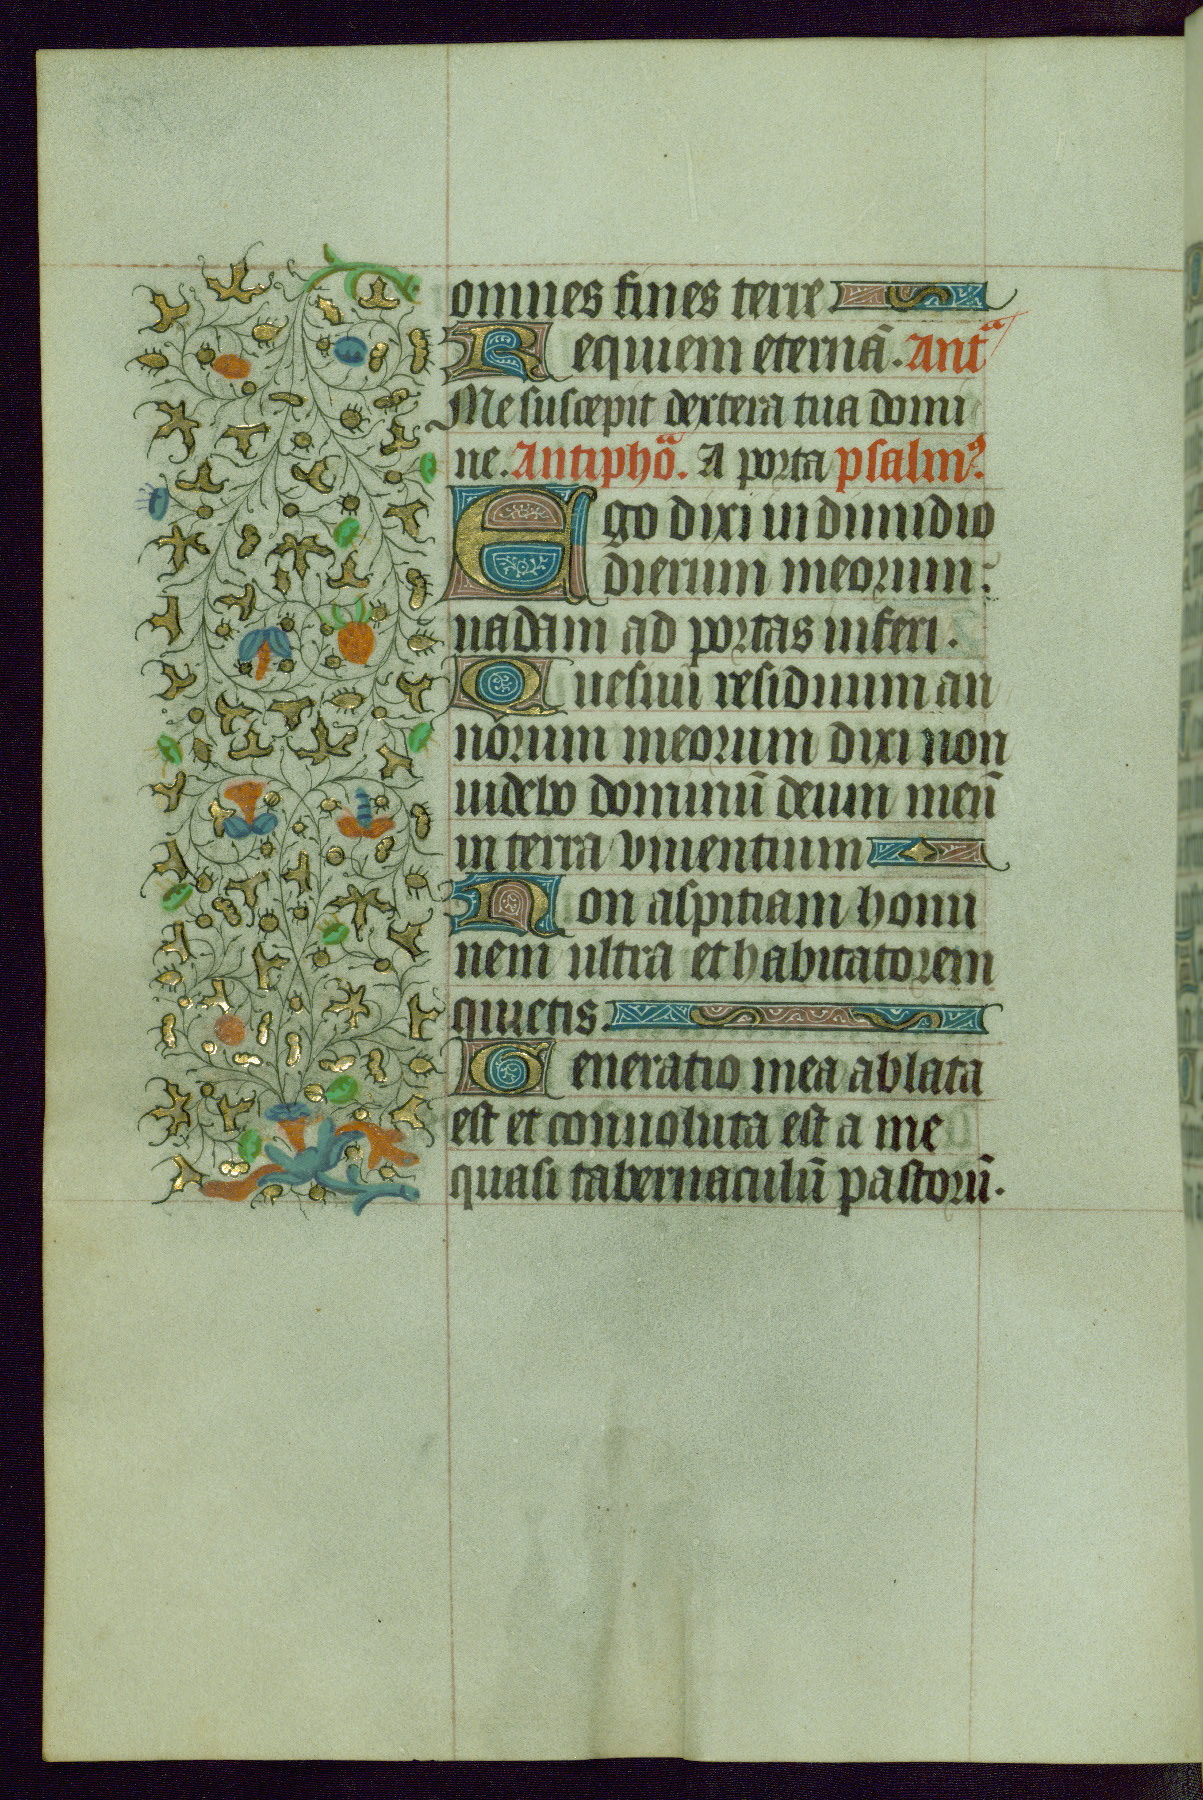 omnes fines terre
Requiem eternā. Antᵃ
Me suscepit dextera tua domi
ne. Antiphoᵃ. A porta psalmꝰ.
Ego dixi in dimidio
dierum meorum:
uadam ad portas inferi.
Quesiui residuum an
norum meorum dixi non
uidebo dominū deum meū
in terra viuentium
Non aspitiam homi
nem ultra et habitatorem
quietis.
Generatio mea ablata
est et conuoluta est a me
quasi tabernaculū pastorū.